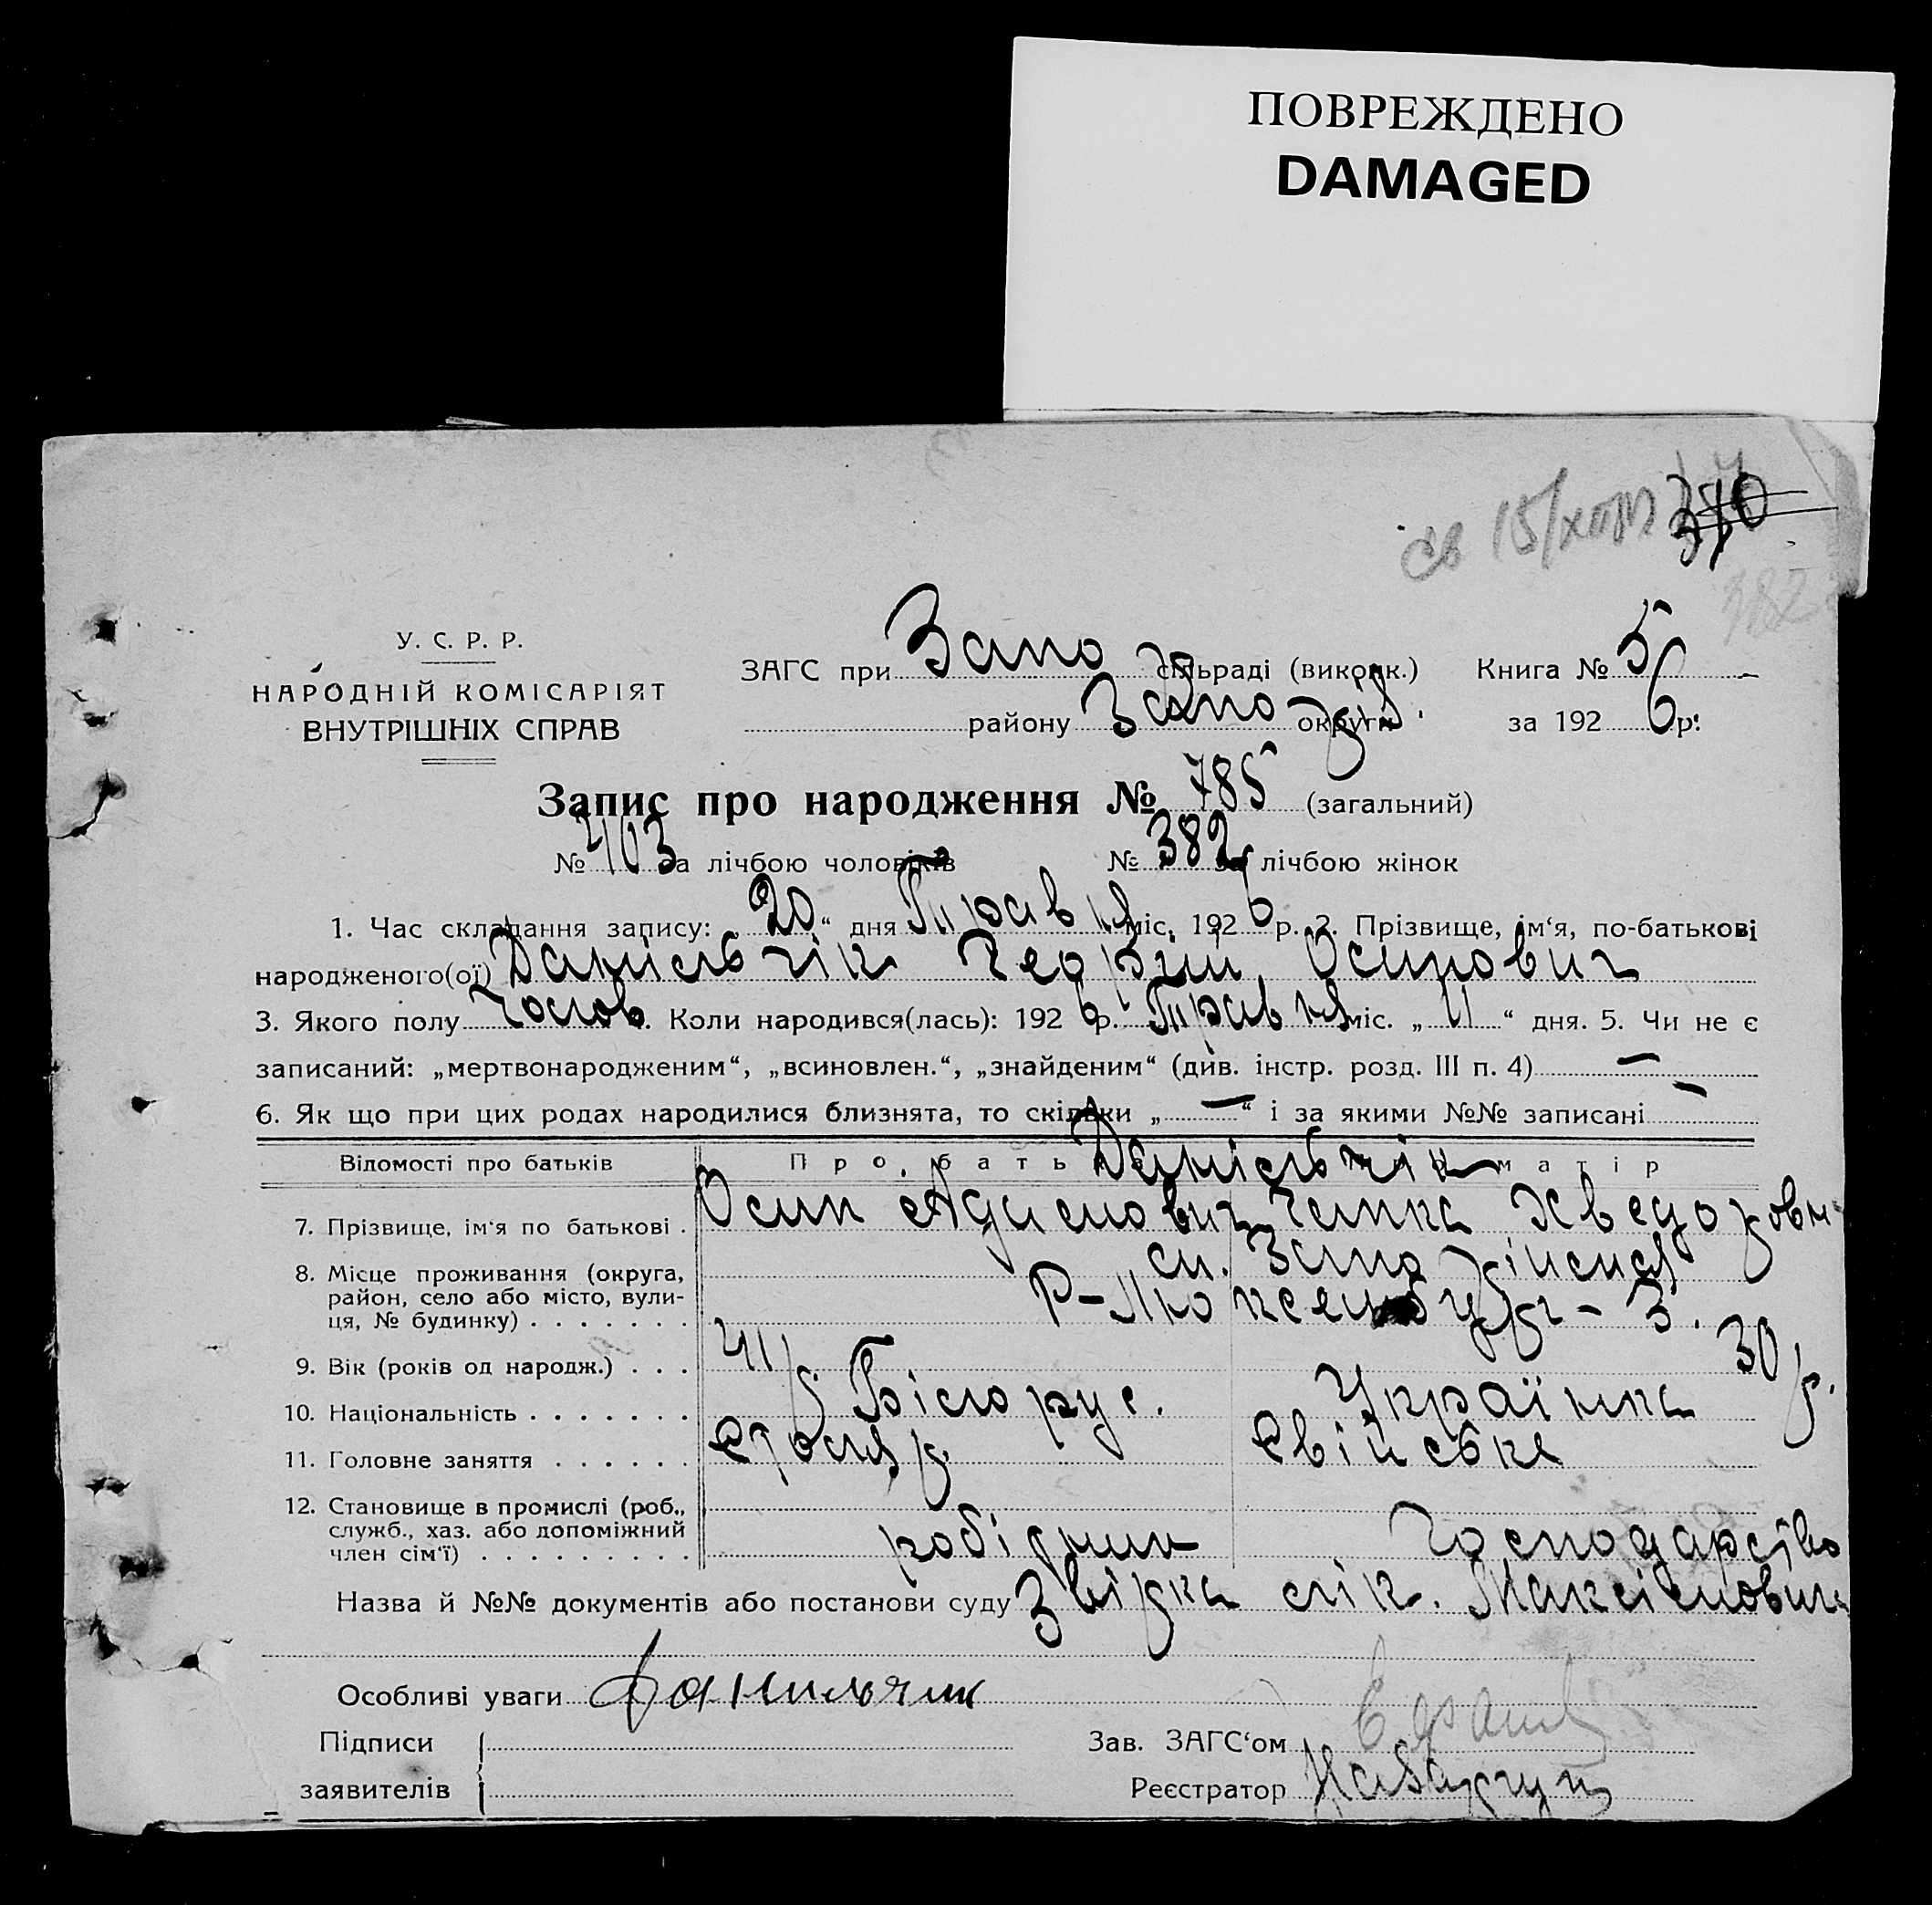 ПОВРЕЖДЕНО
DAMAGED
св 15/
370
382
У. С. Р. Р.
НАРОДНІЙ КОМІСАРІЯТ
ВНУТРІШНІХ СПРАВ
ЗАГС при Запо сільраді (виконк.) Книга № 5
району Запо округи за 192 6 р.
Запис про народження № 785 (загальний)
№ 403 за лічбою чоловіків № 382 за лічбою жінок
1. Час складання запису: „ 20 “ дня Травня міс. 192 6 р. 2. Прізвище, ім‘я, по-батькові
народженого(ої) Данільчік Георгій Осипович
3. Якого полу Чолов. Коли народився(лась): 192 6 р. Травня міс. „ 11 “ дня. 5. Чи не є
записаний: „мертвонародженим“, „всиновлен.“, „знайденим“ (див. інстр. розд. III п. 4) —
6. Як що при цих родах народилися близнята, то скільки „ — “ і за якими №№ записані —
Відомості про батьків Про батька Про матір
Данільчік
7. Прізвище, ім‘я по батькові . Осип Адамович Ганка Хведоровн
8. Місце проживання (округа, район, село або місто, вулиця, № будинку) . . . . . . . ст. Запоріжжя
Р-Люксембург - 3.
9. Вік (років од народж.) . . . 41 р. 30 р.
10. Національність . . . . . . . Білорус. Українка
11. Головне заняття . . . . . . Столяр Свійське
12. Становище в промислі (роб., служб., хаз. або допоміжний член сім‘ї) . . . . . . . . . робідник Господарство
Назва й №№ документів або постанови суду Звірка лік. Максімович
Особливі уваги Данильчик
Підписи
заявителів
Зав. ЗАГС‘ом
Реєстратор